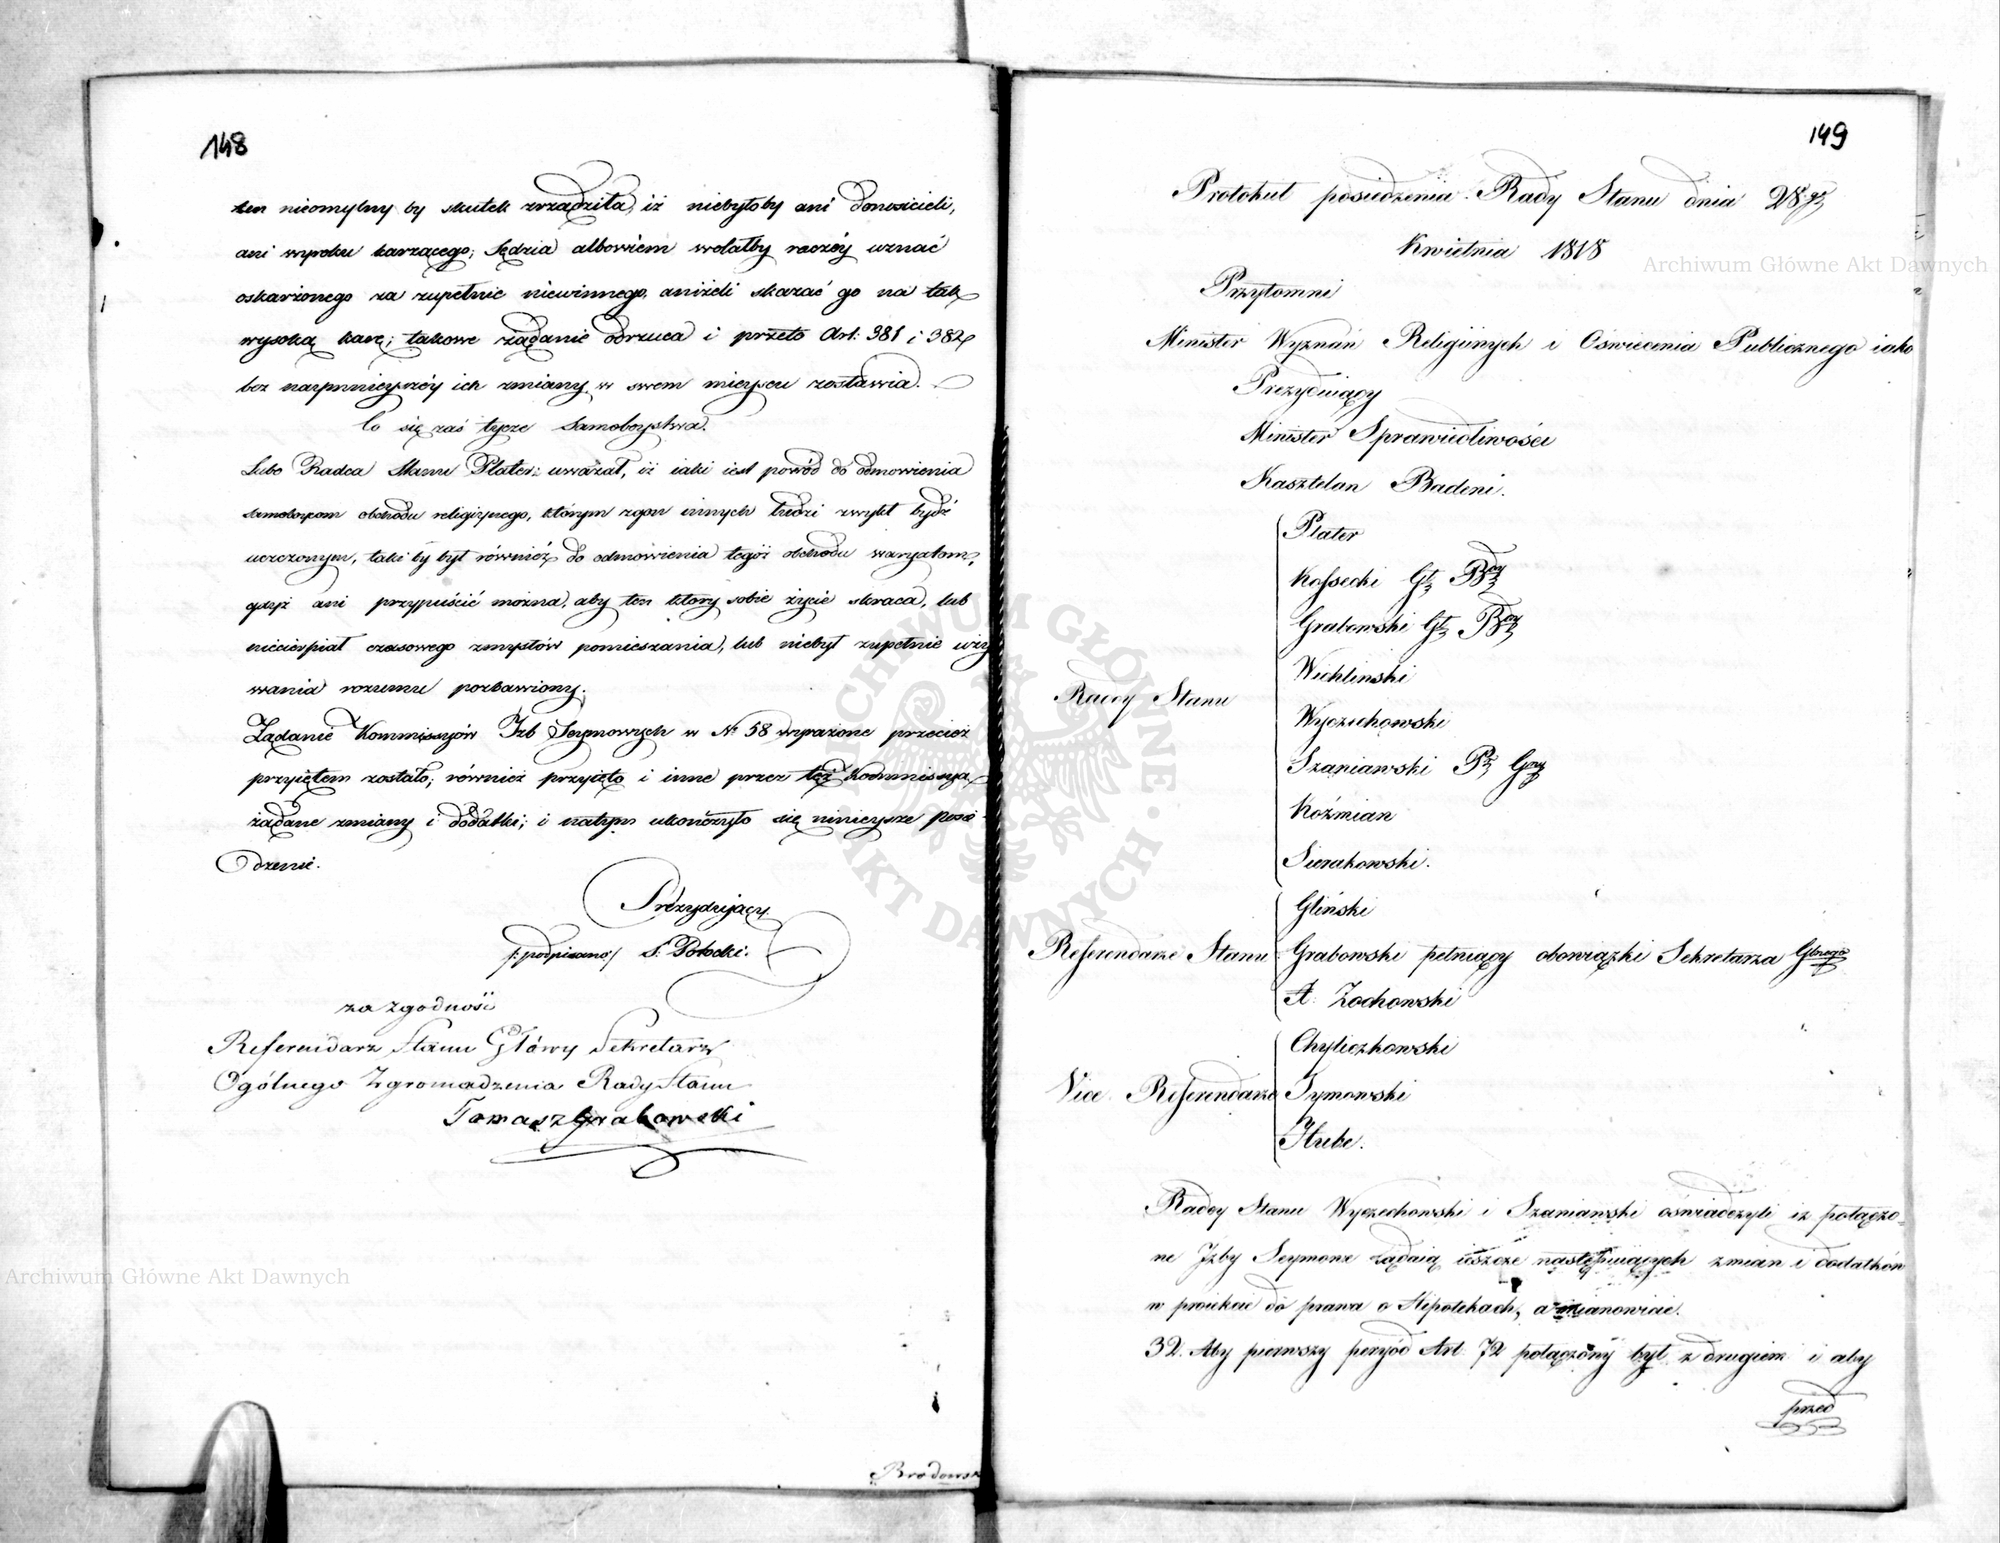 148
ten nieomylny by skutek zrządziła, iż niebyłoby ani donosicieli,
ani wyroku karzącego; Sędzia albowiem wolałby raczéy uznać
oskarżonego za zupełnie niewinnego, aniżeli skazać go na tak
wysoką karę; takowe żądanie odrzuca i przeto Art: 381 i 382
bez naymnieyszéy ich zmiany w swem mieyscu zostawia.
Co się zaś tycze Samobóystwa.
Lubo Radca Stanu Plater: uważał, iż iaki iest powód do odmówienia
samobóycom obchodu religiynego, którym zgon innych ludzi zwykł bydź
uczczonym, taki by był również do odmówienia tegoż obchodu waryatom,
gdyż ani przypuścić można, aby ten który sobie życie skraca, lub
niecierpiał czasowego zmysłów pomieszania, lub niebył zupełnie uży
wania rozumu pozbawiony.
Żądanie Kommissyów Izb Seymowych w Nº 58 wyrażone przecież
przyiętem zostało; również przyięto i inne przez też Kommissyą
żądane zmiany i dodatki; i natym ukończyło się ninieysze posie
dzenie.
Prezyduiący
/:podpisano:/ S. Potocki.
za zgodność
Referendarz Stanu Główy Sekretarz
Ogólnego Zgromadzenia Rady Stanu
Tomasz Grabowski
Brodowsk
149
Protokuł posiedzenia Rady Stanu dnia 28go
Kwietnia 1818
Przytomni
Minister Wyznań Religiinych i Oświecenia Publicznego iako
Prezyduiący
Minister Sprawiedliwości
Kasztelan Badeni.
Plater
Kossecki Gł Bdy
Grabowski Gł Bdy
Wichliński
Wyczechowski
Radcy Stanu
Szaniawski Pr Gny
Koźmian
Sierakowski.
Gliński
Referendarze Stanu Grabowski pełniący obowiązki Sekretarza Głnego
A. Żochowski
Chyliczkowski
Vice Referendarze Tymowski
Hube.
Radcy Stanu Wyczechowski i Szaniawski oświadczyli iż połączo-
ne Izby Seymowe żądaią ieszcze następuiących zmian i dodatków
w proiekcie do prawa o Hipotekach, a mianowicie.
32. Aby pierwszy peryód Art 72 połączony był z drugiem i aby
przed
Archiwum Główne Akt Dawnych
Archiwum Główne Akt Dawnych
ARCHIWUM GŁÓWNE · AKT DAWNYCH ·